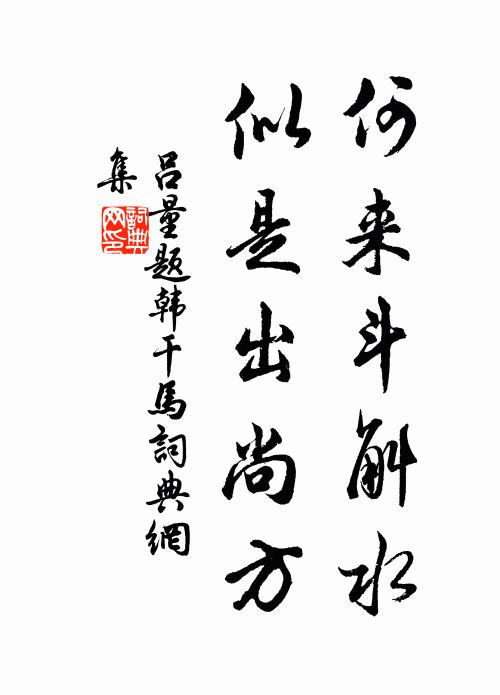 何来斗斛水
似是出尚方
吕量题韩干馬詞典網
集
詞典网印